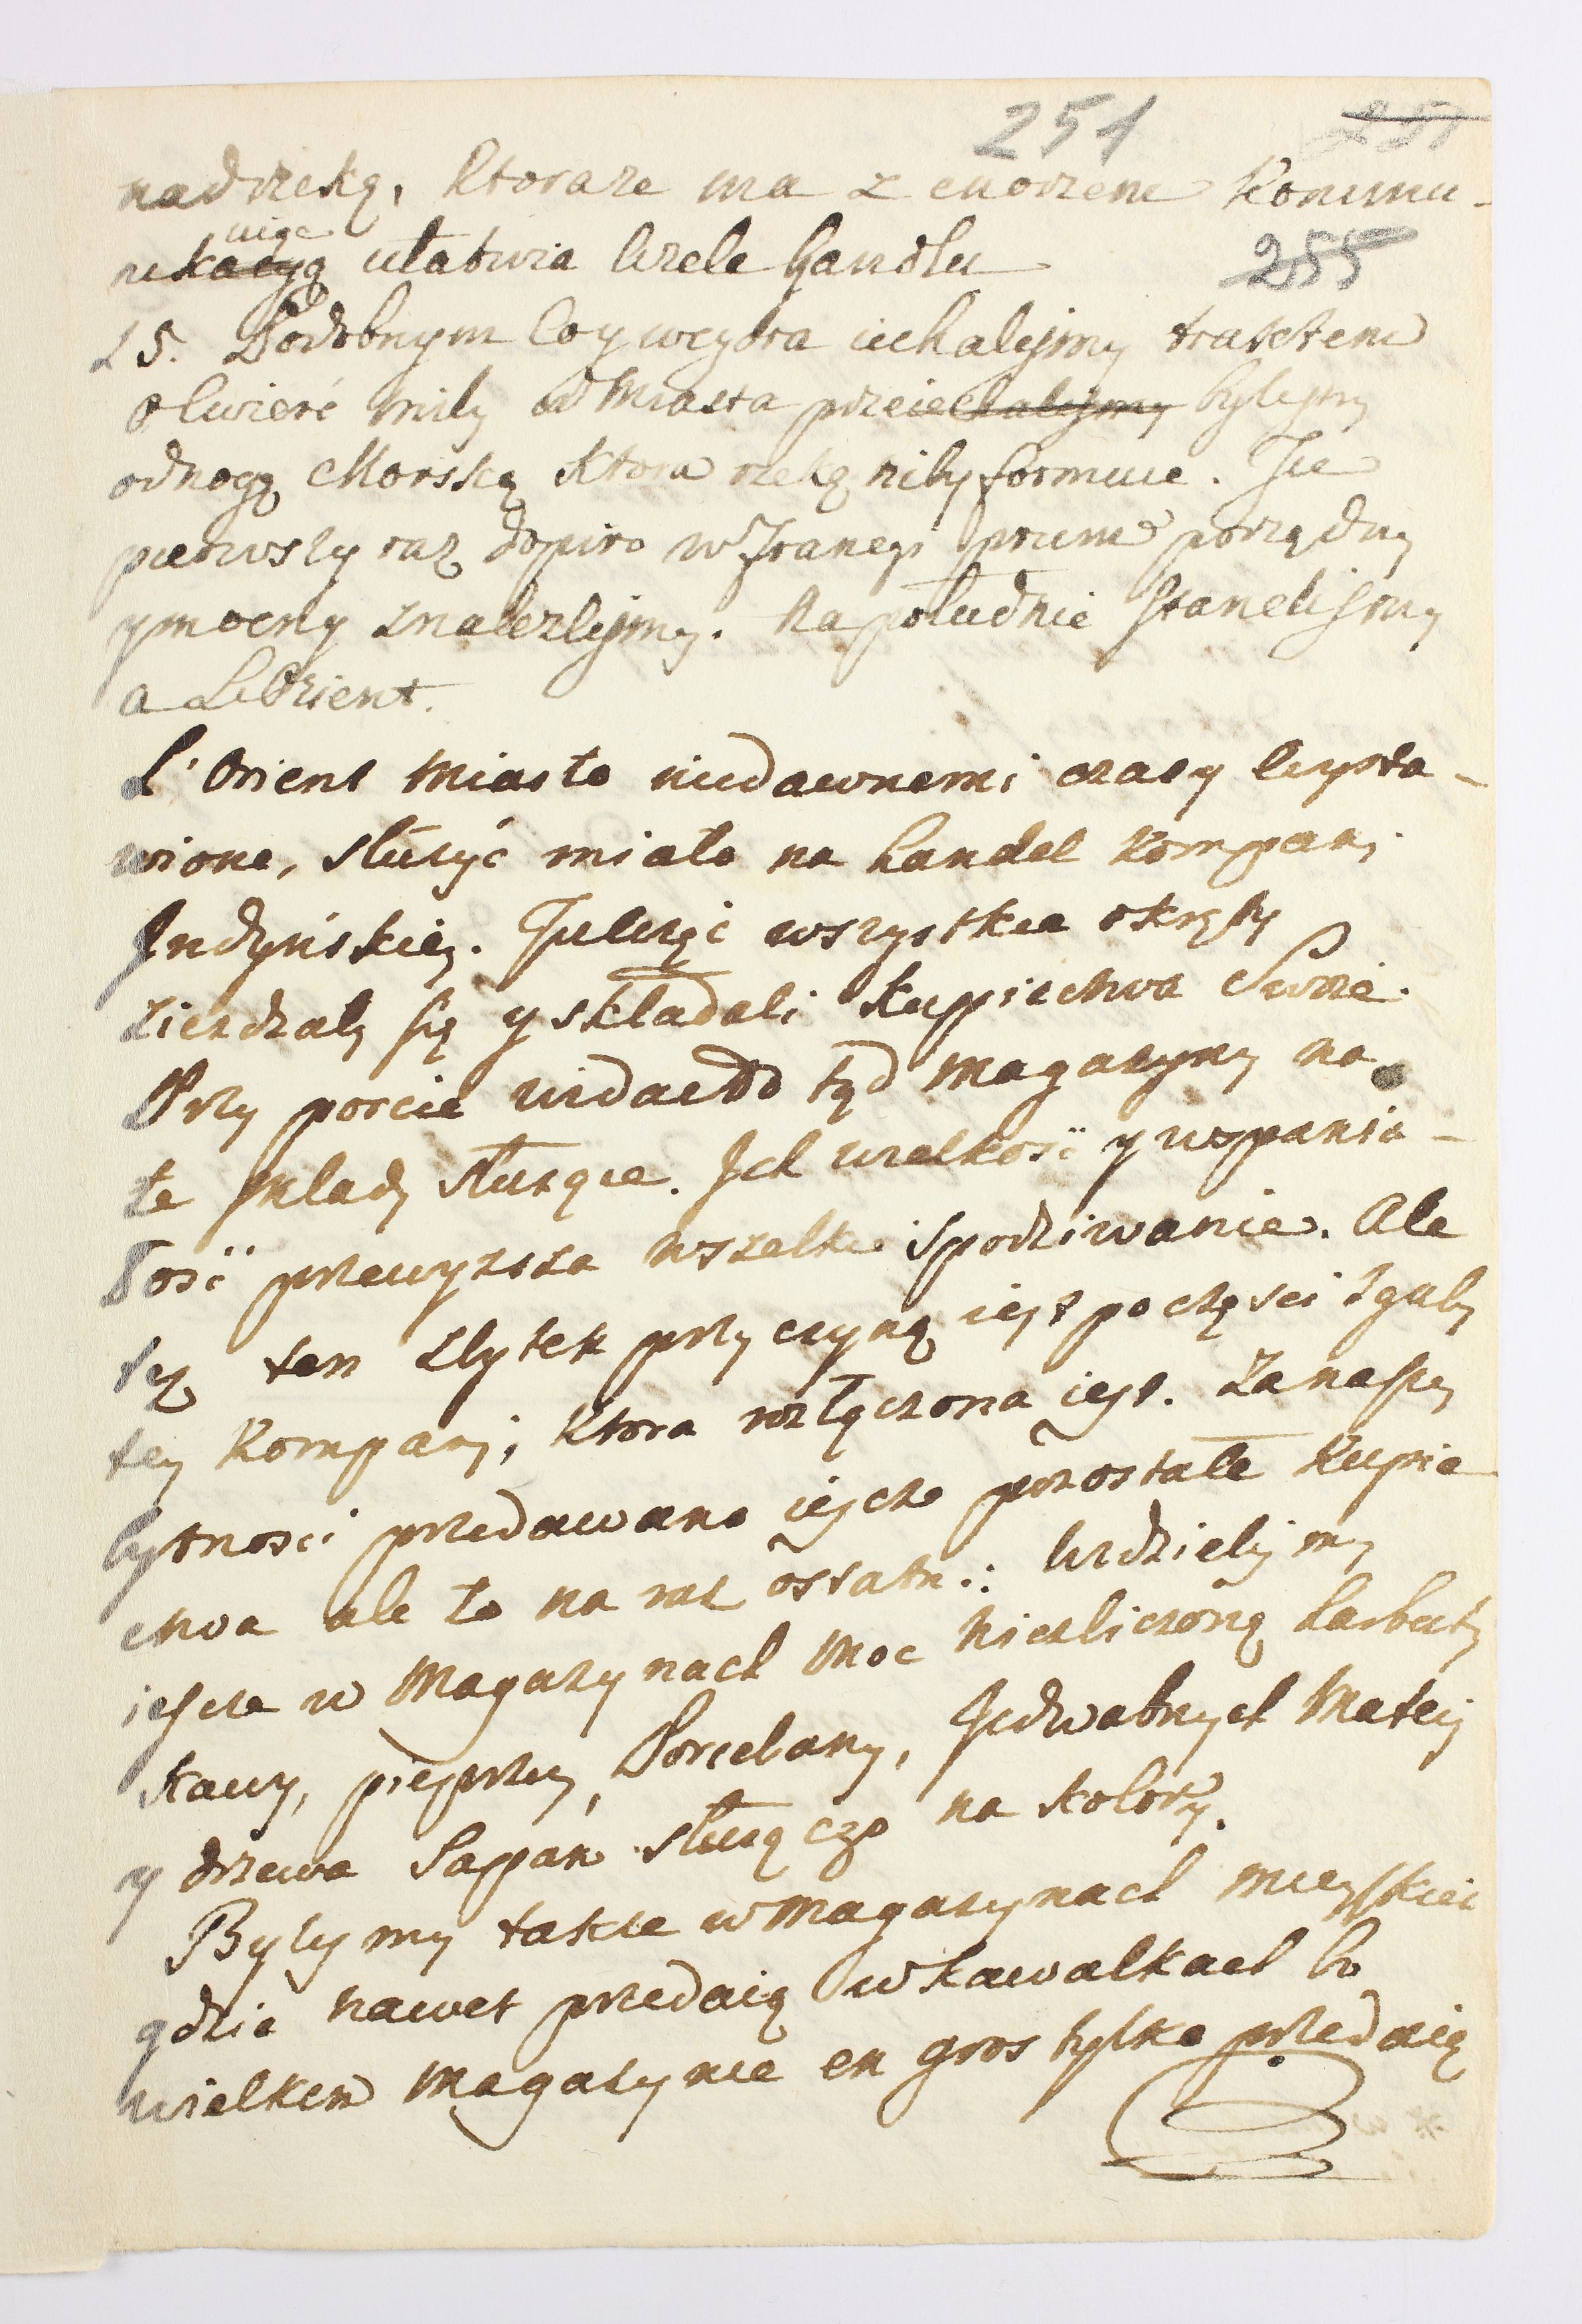 251 251
nad rzeką, ktora ze ma z morzem Kommu-
nikacyą uiąc ułatwia wiele handlu
255
25. Podobnym co y wczora iechalismy traktem
o cwierć mily od Miasta przeiechalismy bylismy
odnogę Morską ktora rzekę niby formuie. Tu
pierwszy raz dopiro w Francyi prum porządny
y mocny znalezlismy. Na południe stanelismy
a L'Orient.
L'Orient Miasto niedawnemi czasy wysta-
wione, służyć miało na handel Kompani
Indyiskiey. Tu wszystkie okręty
ziezdzały się y składali kupiectwa Swoie.
Przy porcie widać od tąd magazyny na
te sklady służące. Ich wielkość y wspania-
łość przewyzsza wszelkie spodziwanie. Ale
też ten zbytek przyczyną iest po częsci zguby
tey Kompani, ktora rozłączona iest. Za naszey
bytnosci przedawano iescze pozostałe kupie
ctwa ale to na raz ostatn.: widzielismy
iescze w Magazynach moc niezliczoną harbaty
kawy, pieprzu, Porcelany, Jedwabnych Materiy
y drzewa Sappan służącego na kolory.
Bylysmy takze w magazynach mieyskich
gdzie nawet przedaią w kawalkach bo
wielkim Magazynie en gros tylko przedaią